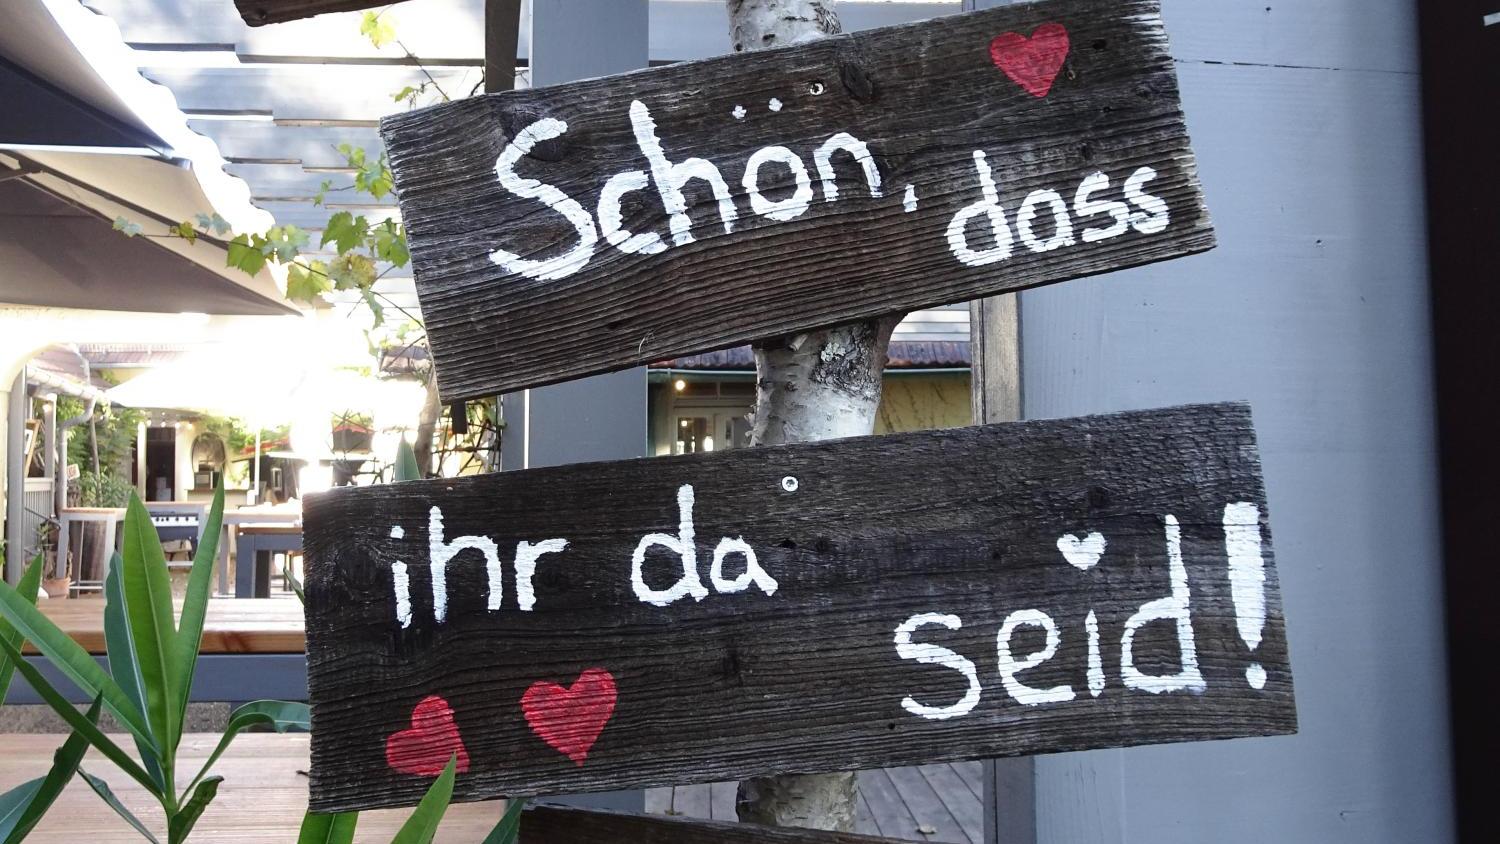 Schön, dass
ihr da
seid!